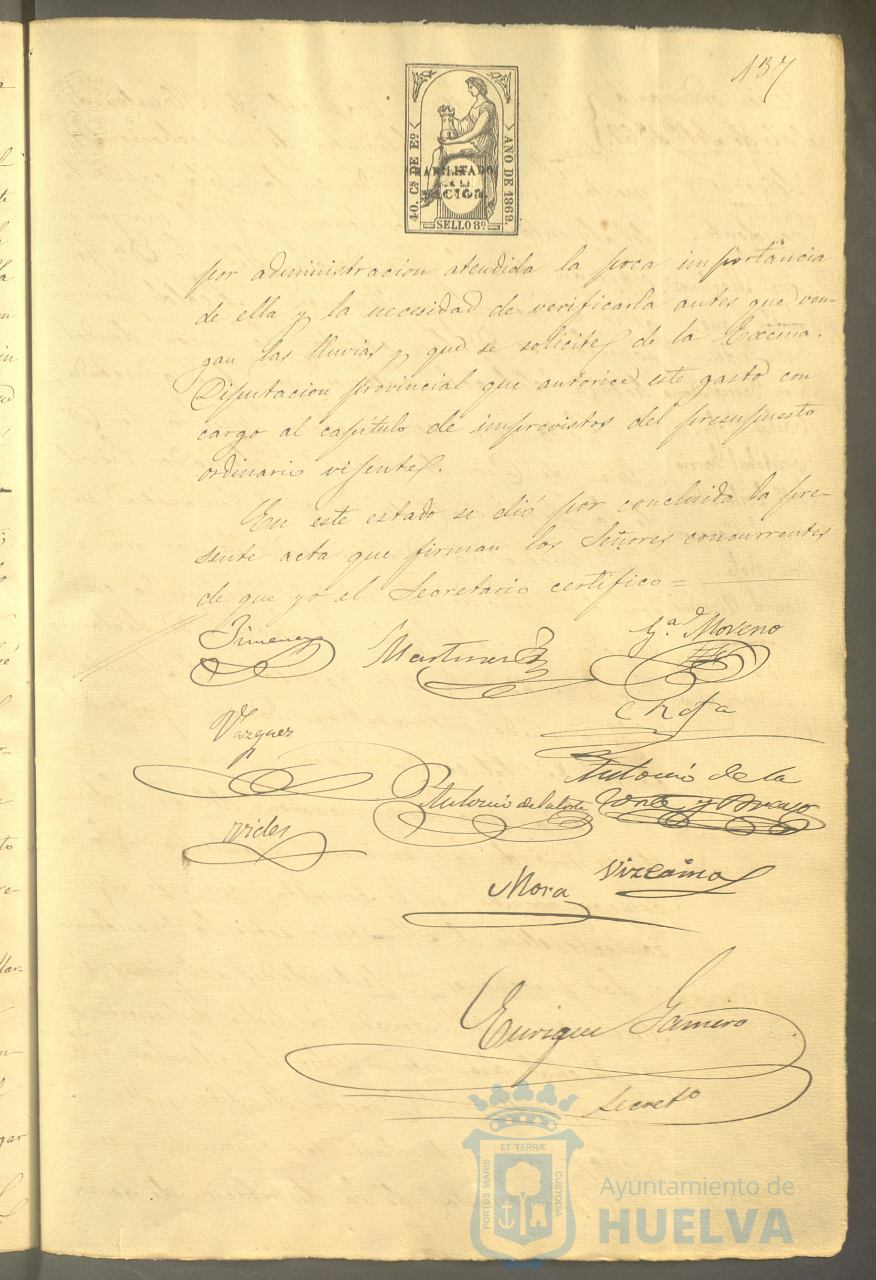 137
40. Cs. DE Eº.
AÑO DE 1869.
HABILITADO
POR LA
NACION.
SELLO 8º
por administracion atendida la poca importancia
de ella y la necesidad de verificarla antes que ven-
gan las lluvias y que se solicite de la Excma.
Diputacion provincial que autorice este gasto con
cargo al capítulo de imprevistos del presupuesto
ordinario vigente.
En este estado se dió por concluida la pre-
sente acta que firman los Señores concurrentes
de que yo el Secretario certifico =
Jimenez
Martinez
Gª. Moreno
Vazquez
Antonio de la
Antonio de la Corte
Corte y
Vides
Mora
Vizcaino
Enrique Gamero
Secretº
ET TERRÆ
PORTUS MARIS
CUSTODIA
Ayuntamiento de
HUELVA